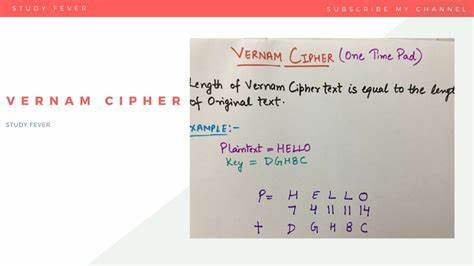 STUDY FEVER
SUBSCRIBE MY CHANNEL
VERNAM CIPHER
STUDY FEVER
VERNAM CIPHER (One Time Pad)
Length of Vernam Ciphertext is equal to the leng
of Original text.
EXAMPLE:-
Plaintext = HELLO
Key = DGHBC
P= H E L L O
7 4 11 11 14
+ D G H B C